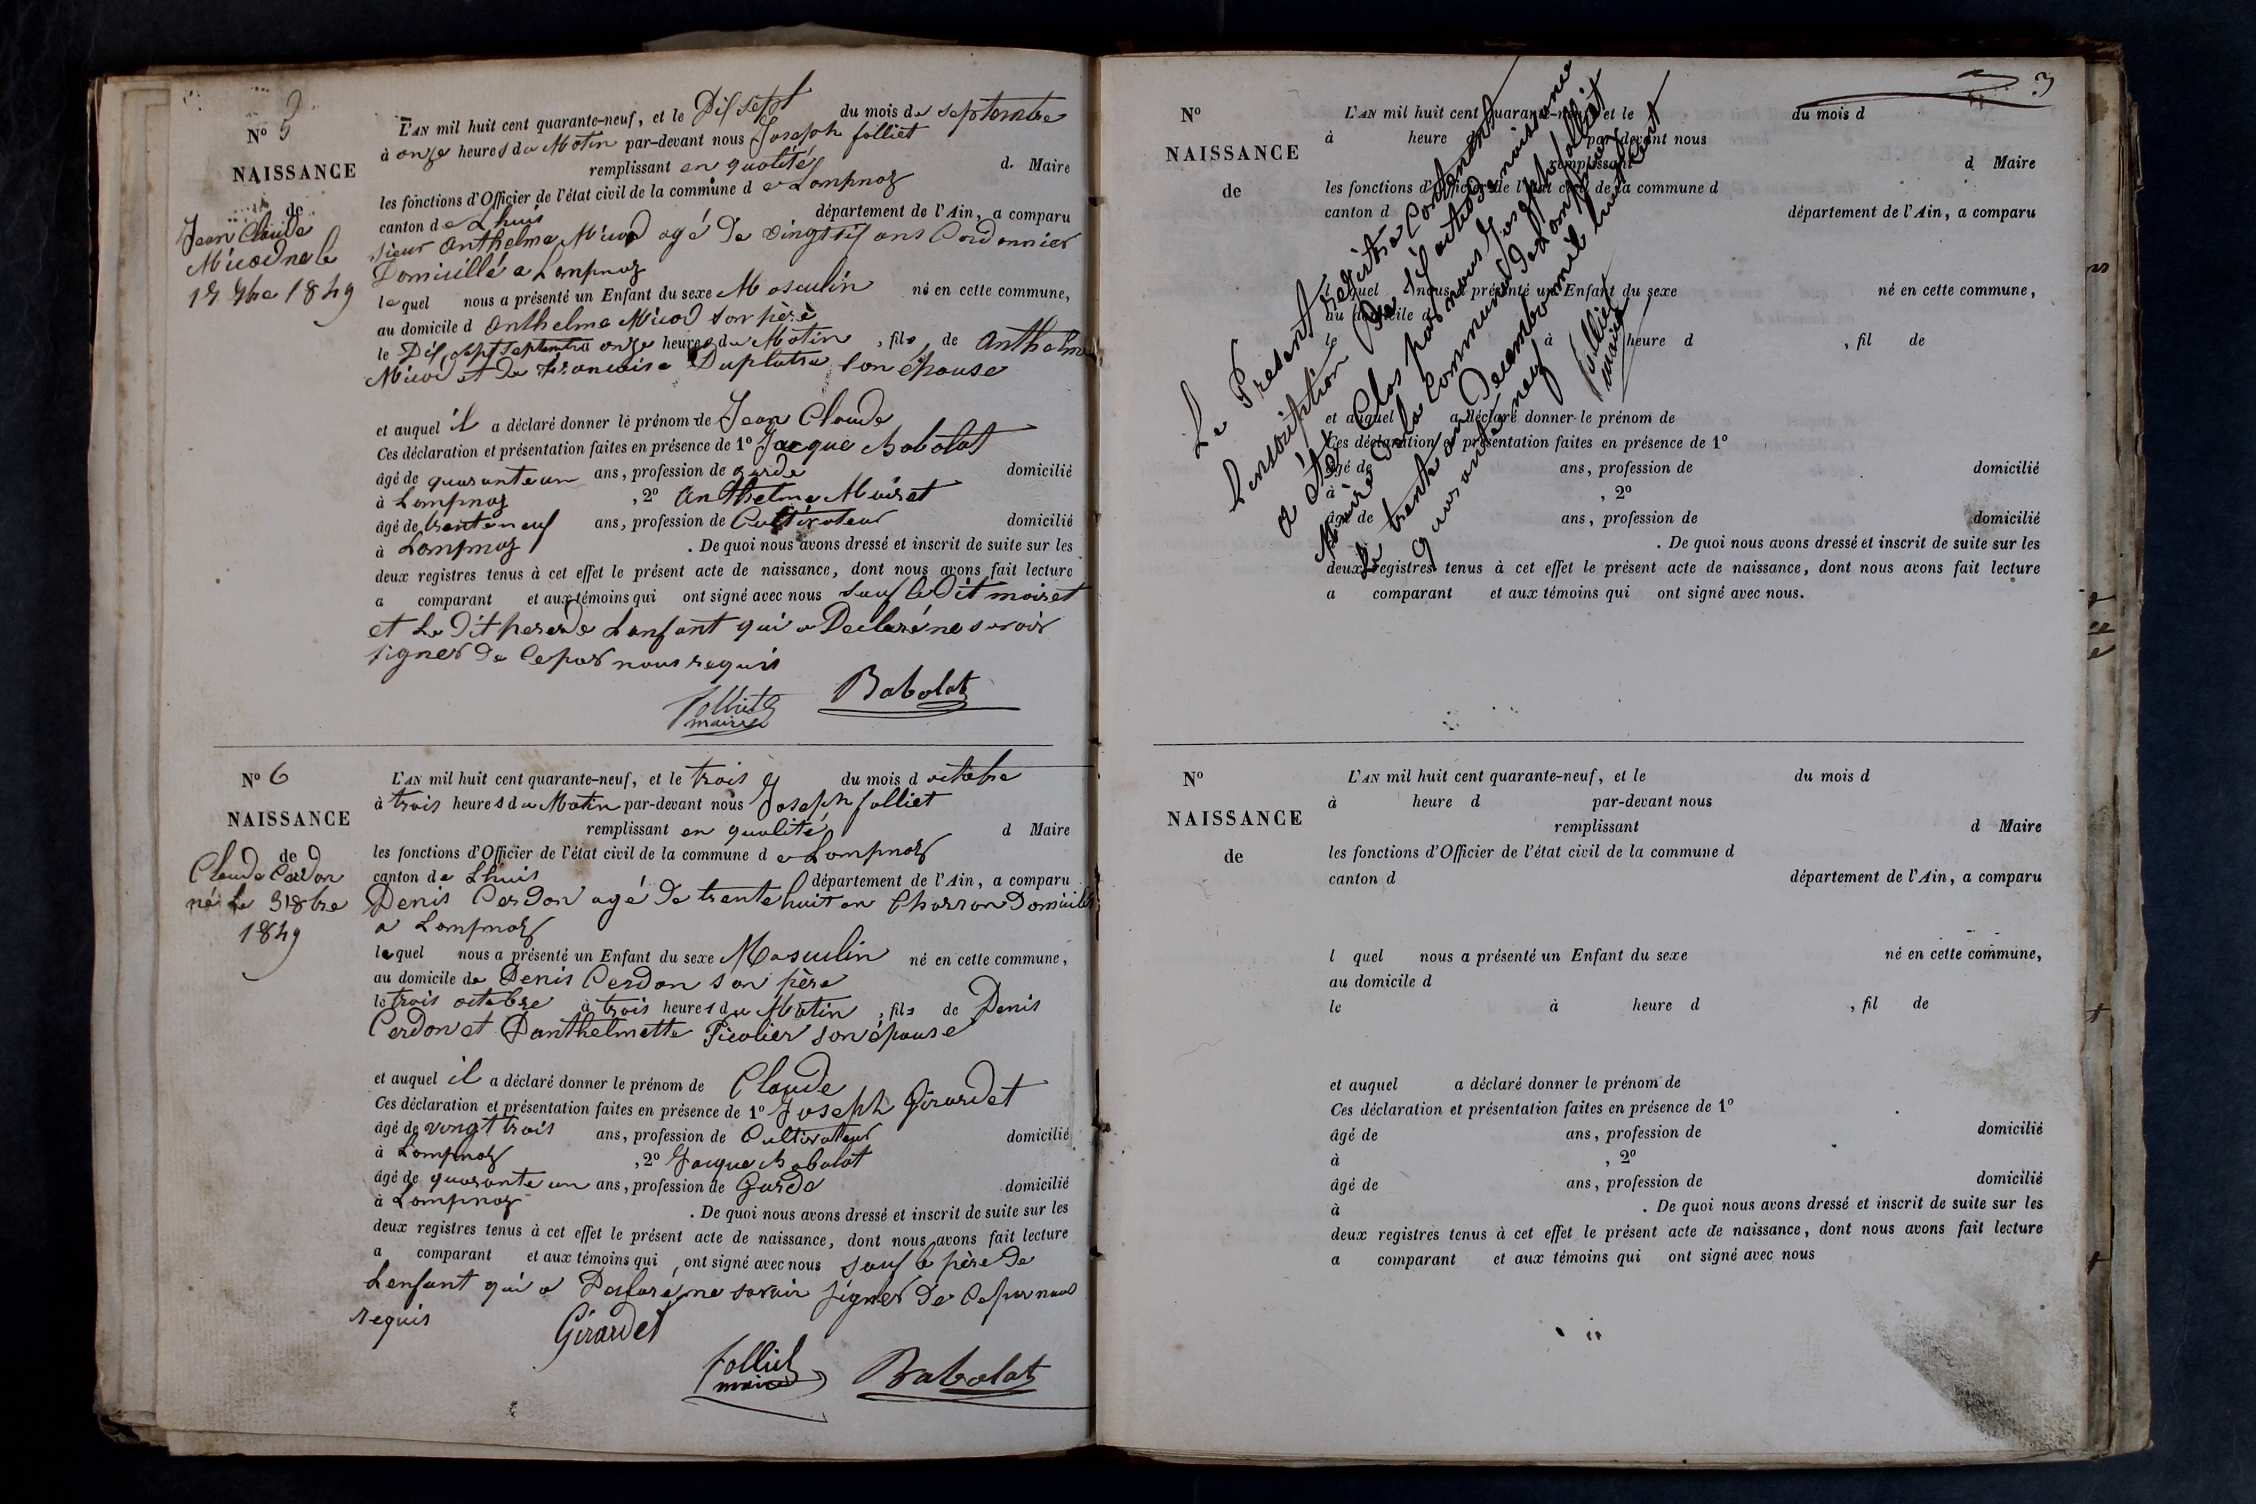 Nº 5
NAISSANCE
de
Jean Claude
Micod né le
17 7bre 1849
L'AN mil huit cent quarante-neuf, et le Dis sept du mois de septembre
à onze heures du Matin par-devant nous Joseph folliet
remplissant en qualité d. Maire
les fonctions d'Officier de l'état civil de la commune d e Lompnaz
canton de Lhuis département de l'Ain, a comparu
sieur Anthelme Micod agé de vingt sis ans Cordonnier
Domicillé a Lompnaz
lequel nous a présenté un Enfant du sexe Masculin né en cette commune,
au domicile d Anthelme Micod son père
le Dis sept septembre onze heures du Matin, fils de Anthelme
Micod et de francoise Duplatre son épouse
et auquel il a déclaré donner le prénom de Jean Claude
Ces déclaration et présentation faites en présence de 1º Jacque Babolat
âgé de quarante un ans, profession de garde domicilié
à Lompnaz , 2º Anthelme Moiret
âgé de trente neuf ans, profession de Cultivateur domicilié
à Lompnaz . De quoi nous avons dressé et inscrit de suite sur les
deux registres tenus à cet effet le présent acte de naissance, dont nous avons fait lecture
a comparant et aux témoins qui ont signé avec nous sauf le Dit moiret
et Le Dit pere de Lenfant qui a Declaré ne savoir
signer de Ce par nous requis
folliet
maire
Babolat
Nº 6
NAISSANCE
de
Claude Cerdon
né le 3 8bre
1849
L'AN mil huit cent quarante-neuf, et le trois du mois d octobre
à trois heures du Matin par-devant nous Joseph folliet
remplissant en qualité d Maire
les fonctions d'Officier de l'état civil de la commune d e Lompnaz
canton de Lhuis département de l'Ain, a comparu
Denis Cerdon agé de trente huit an Charron Domicilié
a Lompnaz
lequel nous a présenté un Enfant du sexe Masculin né en cette commune,
au domicile de Denis Cerdon son père
le trois octobre à trois heures du Matin, fils de Denis
Cerdon et Danthelmette Picolier son épouse
et auquel il a déclaré donner le prénom de Claude
Ces déclaration et présentation faites en présence de 1º Joseph Girardet
âgé de vingt trois ans, profession de Cultivateur domicilié
à Lompnaz , 2º Jacque Babolat
âgé de quarante un ans, profession de Garde domicilié
à Lompnaz . De quoi nous avons dressé et inscrit de suite sur les
deux registres tenus à cet effet le présent acte de naissance, dont nous avons fait lecture
a comparant et aux témoins qui ont signé avec nous sauf le père de
Lenfant qui a Declaré ne savoir signer de Ce par nous
requis
Girardet
folliet
maire
Babolat
3
Nº
NAISSANCE
de
L'AN mil huit cent quarante-neuf, et le du mois d
à heure d par-devant nous
remplissant d Maire
les fonctions d'Officier de l'état civil de la commune d
canton d département de l'Ain, a comparu
l quel nous a présenté un Enfant du sexe né en cette commune,
au domicile d
le à heure d , fil de
et auquel a déclaré donner le prénom de
Ces déclaration et présentation faites en présence de 1º
âgé de ans, profession de domicilié
à , 2º
âgé de ans, profession de domicilié
. De quoi nous avons dressé et inscrit de suite sur les
deux registres tenus à cet effet le présent acte de naissance, dont nous avons fait lecture
a comparant et aux témoins qui ont signé avec nous.
Le Present registre Contenent
Linscription De sis actes De naissance
a été Clos par nous Joseph folliet
Maire de la Commune de Lompnaz
Le trente un Decembre mil huit cent
quarante neuf
folliet
maire
Nº
NAISSANCE
de
L'AN mil huit cent quarante-neuf, et le du mois d
à heure d par-devant nous
remplissant d Maire
les fonctions d'Officier de l'état civil de la commune d
canton d département de l'Ain, a comparu
l quel nous a présenté un Enfant du sexe né en cette commune,
au domicile d
le à heure d , fil de
et auquel a déclaré donner le prénom de
Ces déclaration et présentation faites en présence de 1º
âgé de ans, profession de domicilié
à , 2º
âgé de ans, profession de domicilié
à . De quoi nous avons dressé et inscrit de suite sur les
deux registres tenus à cet effet le présent acte de naissance, dont nous avons fait lecture
a comparant et aux témoins qui ont signé avec nous